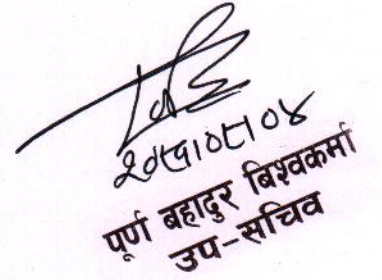 २०८१०८१०४
पूर्ण बहादुर बिश्वकर्मा
उप-सचिव